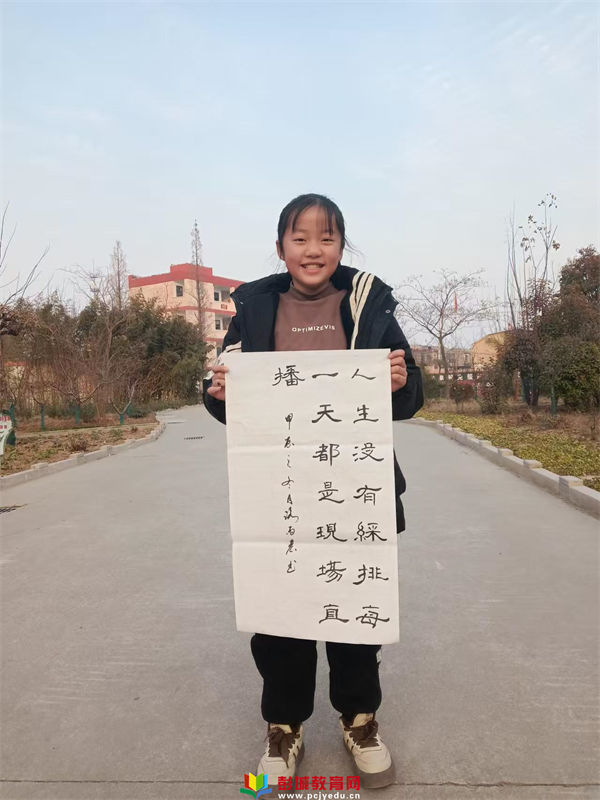 OPTIMIZEVIS
人生没有綵排每
一天都是現場直
播
甲辰之冬月
彭城教育网
www.pcjyedu.cn